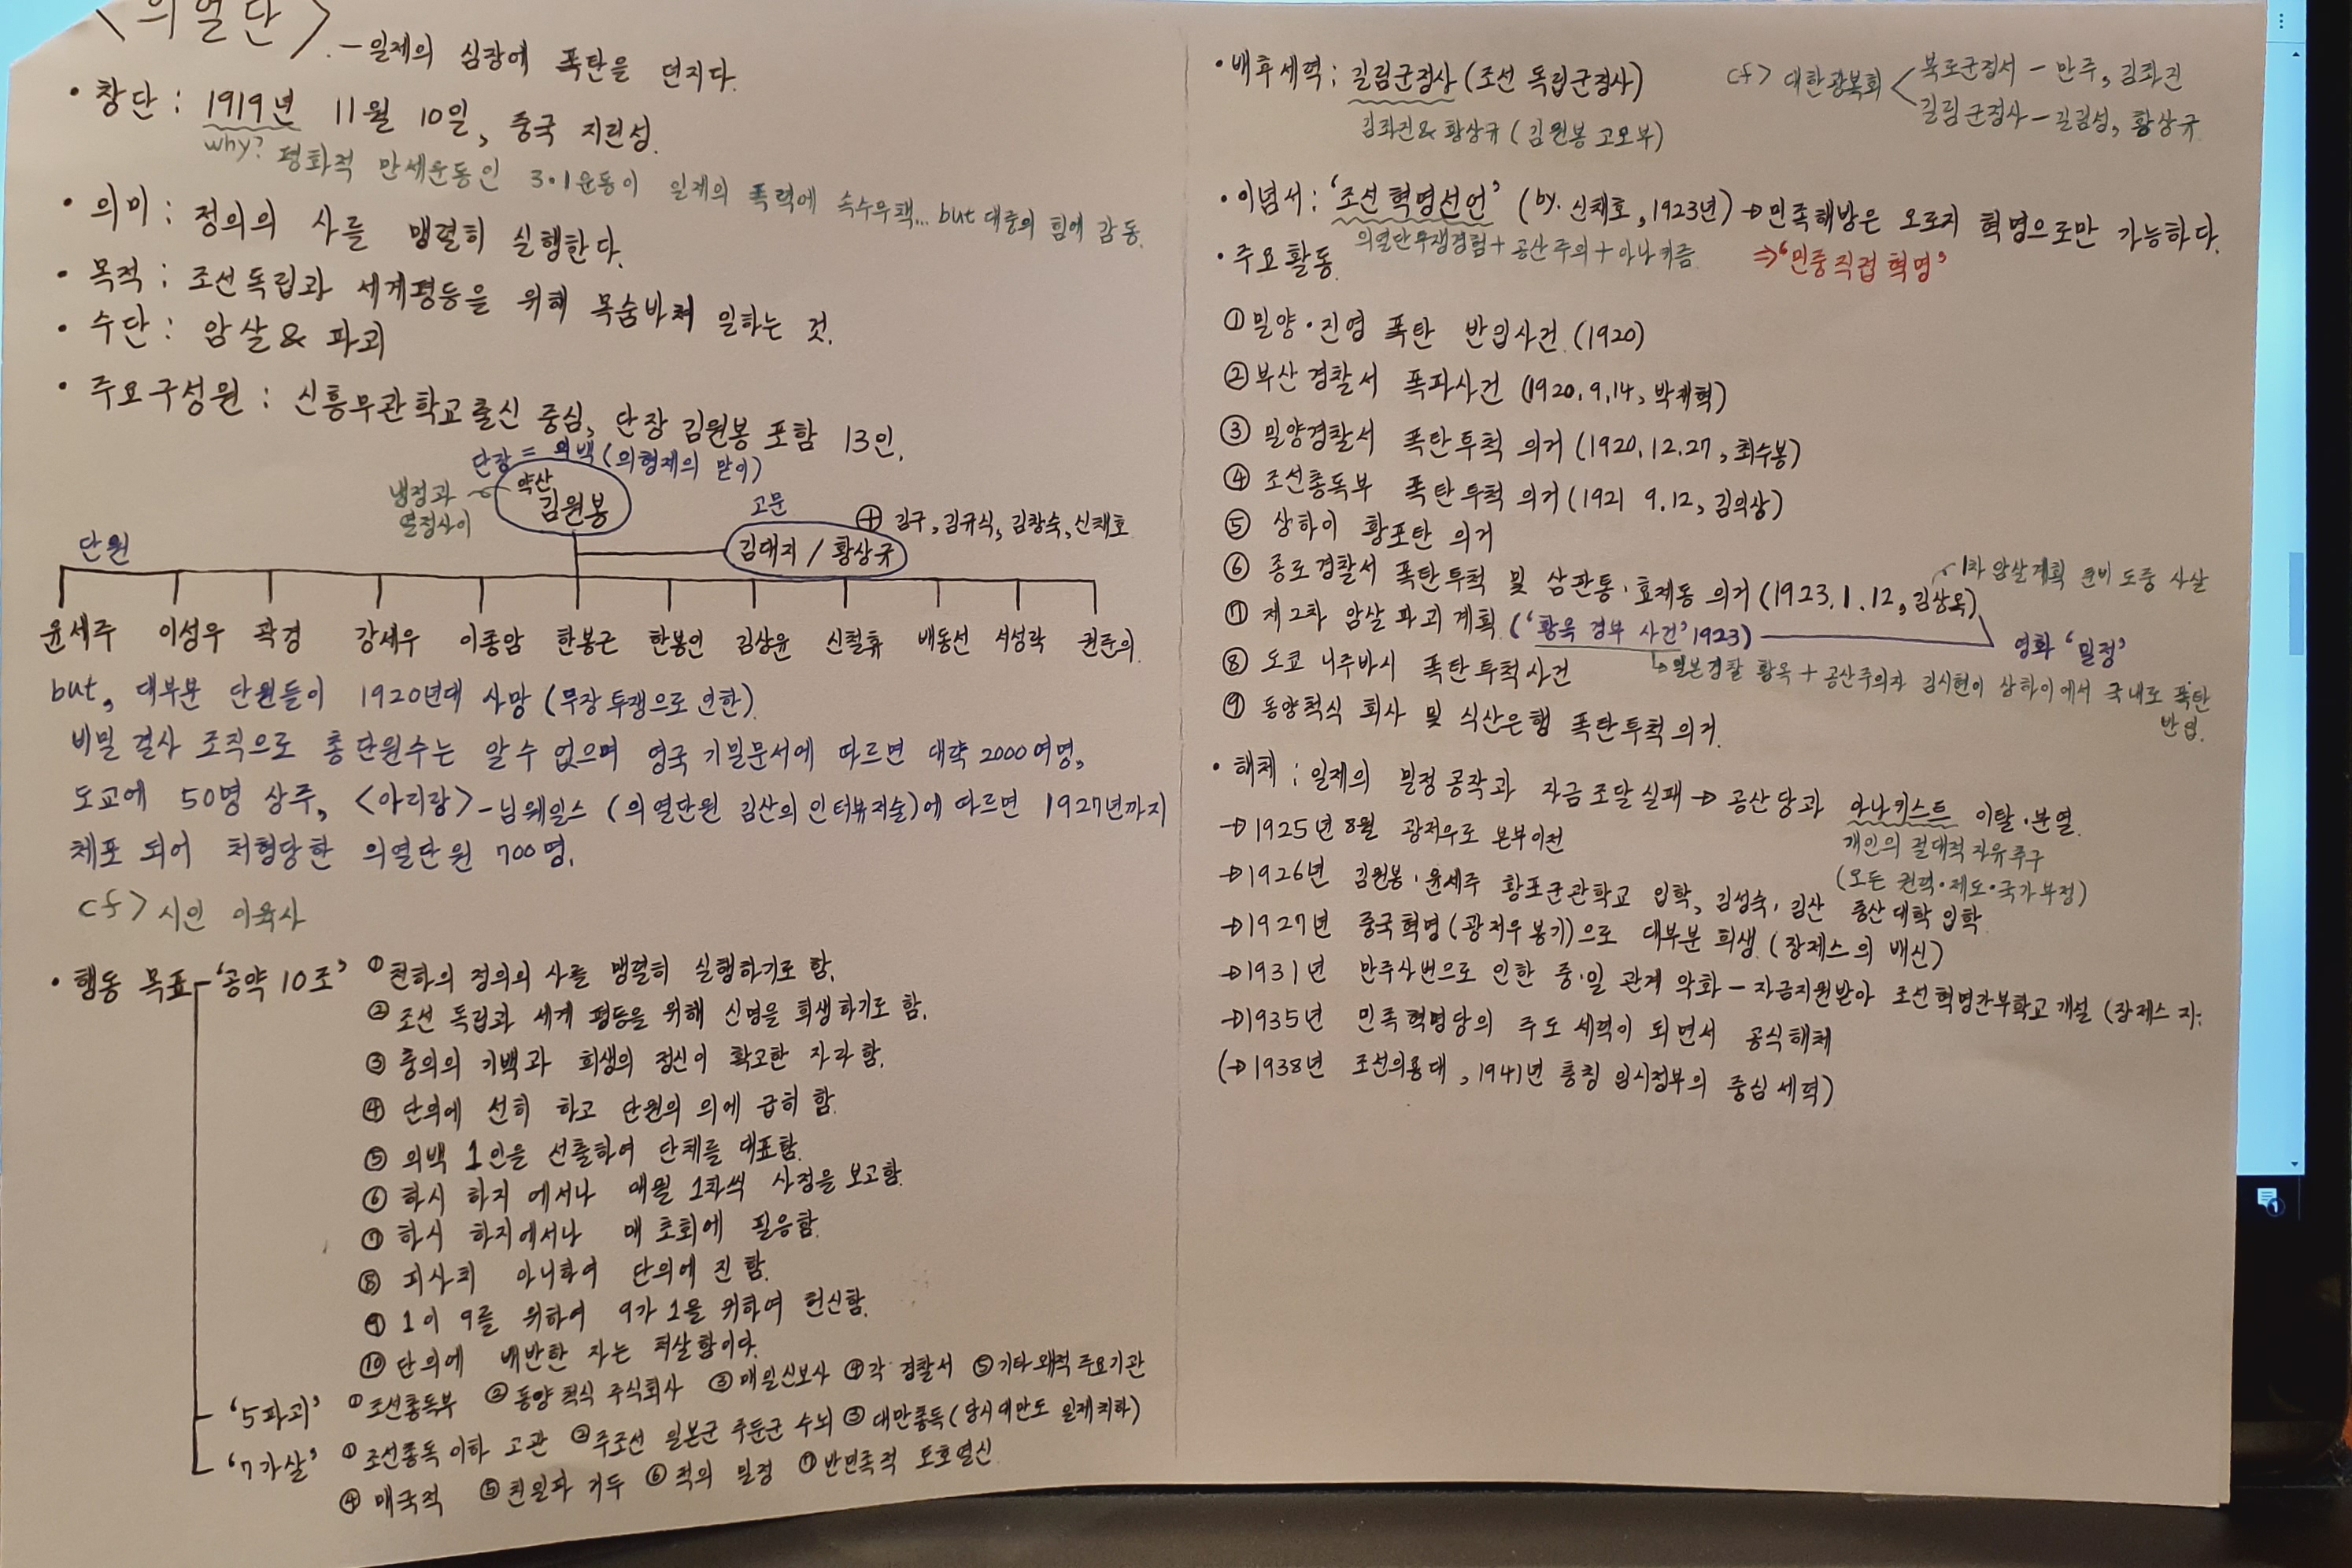 <의열단>
- 일제의 심장에 폭탄을 던지다.
• 창단 : 1919년 11월 10일, 중국 지린성.
why? 평화적 만세운동인 3·1운동이 일제의 폭력에 속수무책... but 대중의 힘에 감동.
• 의미 : 정의의 사를 맹렬히 실행한다.
• 목적 : 조선독립과 세계평등을 위해 목숨바쳐 일하는 것.
• 수단 : 암살 & 파괴
• 주요구성원 : 신흥무관학교출신 중심, 단장 김원봉 포함 13인.
단장 = 의백 (의형제의 맏이)
냉정과 열정사이
약산
김원봉
고문
김대지 / 황상규
⊕ 김구, 김규식, 김창숙, 신채호
단원
윤세주 이성우 곽경 강세우 이종암 한봉근 한봉인 김상윤 신철휴 배동선 서상락 권준의
but, 대부분 단원들이 1920년대 사망 (무장투쟁으로 인한)
비밀 결사 조직으로 총 단원수는 알 수 없으며 영국 기밀문서에 따르면 대략 2000여명,
도쿄에 50명 상주, <아리랑> - 님웨일스 (의열단원 김산의 인터뷰저술)에 따르면 1927년까지
체포 되어 처형당한 의열단원 700명.
cf> 시인 이육사
• 행동 목표 - '공약 10조' ① 천하의 정의의 사를 맹렬히 실행하기로 함.
② 조선 독립과 세계 평등을 위해 신명을 희생하기로 함.
③ 충의의 기백과 희생의 정신이 확고한 자라 함.
④ 단의에 선히 하고 단원의 의에 급히 함.
⑤ 의백 1인을 선출하여 단체를 대표함.
⑥ 하시 하지 에서나 매월 1차씩 사정을 보고함.
⑦ 하시 하지에서나 매 초회에 필응함.
⑧ 피사치 아니하여 단의에 진 함.
⑨ 1이 9를 위하여 9가 1을 위하여 헌신함.
⑩ 단의에 배반한 자는 처살함이다.
'5파괴' ① 조선총독부 ② 동양 척식 주식회사 ③ 매일신보사 ④ 각 경찰서 ⑤ 기타 왜적 주요기관
'7가살' ① 조선총독 이하 고관 ② 주조선 일본군 주둔군 수뇌 ③ 대만총독 (당시 대만도 일제치하)
④ 매국적 ⑤ 친일파 거두 ⑥ 적의 밀정 ⑦ 반민족적 토호열신
• 배후세력 : 길림군정사 (조선 독립군정사)
김좌진 & 황상규 (김원봉 고모부)
cf> 대한광복회 < 북로군정서 - 만주, 김좌진
길림군정사 - 길림성, 황상규
• 이념서 : '조선 혁명선언' (by. 신채호, 1923년) → 민족해방은 오로지 혁명으로만 가능하다.
의열단투쟁경험 + 공산주의 + 아나키즘 ⇒ '민중 직접 혁명'
• 주요 활동
① 밀양·진영 폭탄 반입사건 (1920)
② 부산 경찰서 폭파사건 (1920. 9. 14, 박재혁)
③ 밀양경찰서 폭탄투척 의거 (1920. 12. 27, 최수봉)
④ 조선총독부 폭탄 투척 의거 (1921 9. 12, 김익상)
⑤ 상하이 황포탄 의거
⑥ 종로경찰서 폭탄투척 및 삼판통·효제동 의거 (1923. 1. 12, 김상옥)
1차 암살계획 준비 도중 사살
⑦ 제2차 암살 파괴 계획 ('황옥 경부 사건' 1923)
영화 '밀정'
↳ 일본경찰 황옥 + 공산주의자 김시현이 상하이에서 국내로 폭탄 반입.
⑧ 도쿄 니주바시 폭탄투척사건
⑨ 동양척식 회사 및 식산은행 폭탄투척 의거.
• 해체 : 일제의 밀정 공작과 자금 조달 실패 → 공산당과 아나키스트 이탈·분열.
개인의 절대적 자유추구
(모든 권력·제도·국가부정)
→ 1925년 8월 광저우로 본부이전
→ 1926년 김원봉·윤세주 황포군관학교 입학, 김성숙·김산 중산대학 입학
→ 1927년 중국혁명 (광저우 봉기)으로 대부분 희생 (장제스의 배신)
→ 1931년 만주사변으로 인한 중·일 관계 악화 - 자금지원받아 조선혁명간부학교 개설 (장제스 지
→ 1935년 민족혁명당의 주도 세력이 되면서 공식해체
(→ 1938년 조선의용대, 1941년 충칭 임시정부의 중심 세력)
1